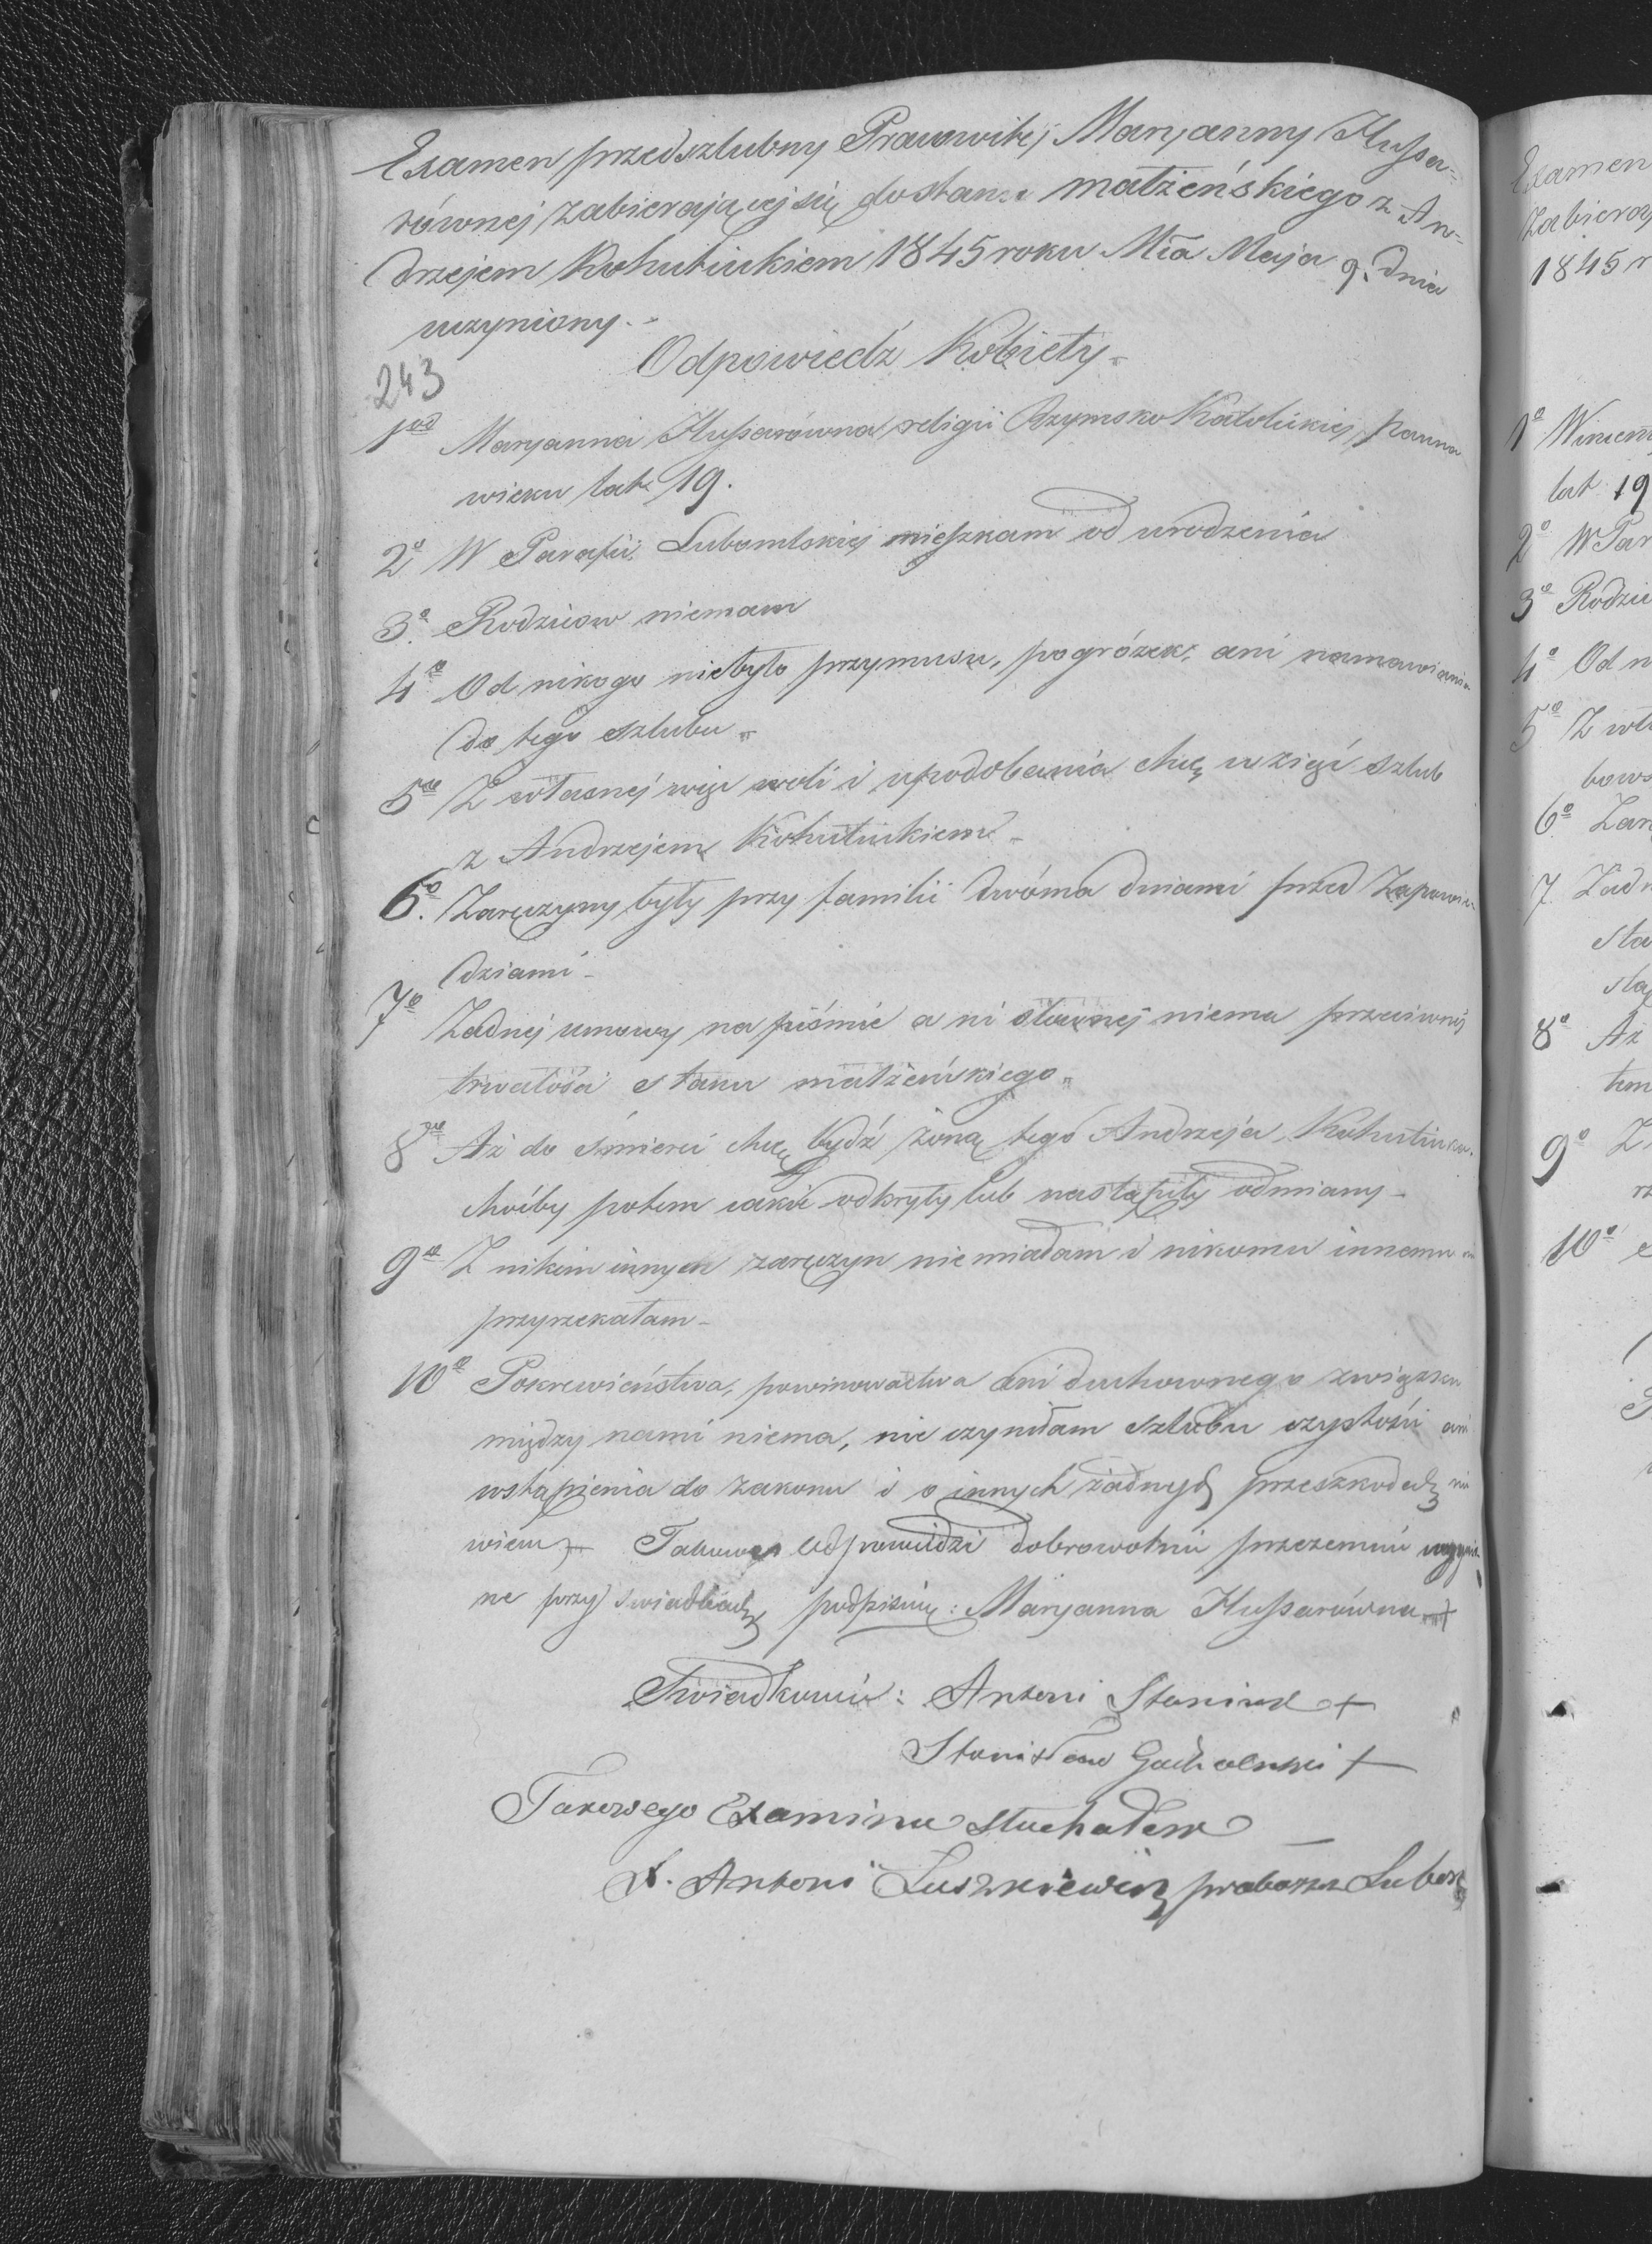 Examen przedszlubny Pracowitej Maryanny Hussa=
równej zabierającej się do stanu małżeńskiego z An=
drzejem Kohutiukiem 1845 roku Mca Maja 9. dnia
uczyniony.
Odpowiedź Kobiety
243
1mo Maryanna Hussarówna religii Rzymsko Katolickiej panna
wieku lat 19.
2o W Parafii Lubomlskiej mieszkam od urodzenia
3o Rodziców niemam
4o Od nikogo niebyło przymusu, pogróżek, ani namawiania
do tego szlubu
5o Z własnej więc woli i upodobania chcę wziąć szlub
z Andrzejem Kohutiukiem
6o Zaręczyny były przy familii dwóma dniami przed Zapowie=
dziami
7o Żadnej umowy na piśmie ani słownej niema przeciwnej
trwałości stanu małżeńskiego
8o Aż do śmierci chcę bydź żoną tego Andrzeja Kohutiuka
choćby potem jakie odkryły lub nastąpiły odmiany
9o Z nikim innych zaręczyn nie miałam i nikomu innemu
przyrzekałam
10o Pokrewieństwa, powinowactwa ani duchownego związku
między nami niema, nie czyniłam szlubu czystości ani
wstąpienia do zakonu i o innych żadnych przeszkodach nie
wiem Takowe odpowiedzi dobrowolnie przezemnie uczynio=
ne przy swiadkach podpisuię: Maryanna Hussarówna +
Swiadkowie: Antoni +
Stanisław +
Takowego Examinu słuchałem
X. Antoni Luszkiewicz proboszcz
Examen
Zabieraj
1845 r
1o
lat 19
2o W Par
3o Rodzic
4o Od n
5o Z wł
6o Zar
7. Żadn
sta
8o Aż
9o Z
10o